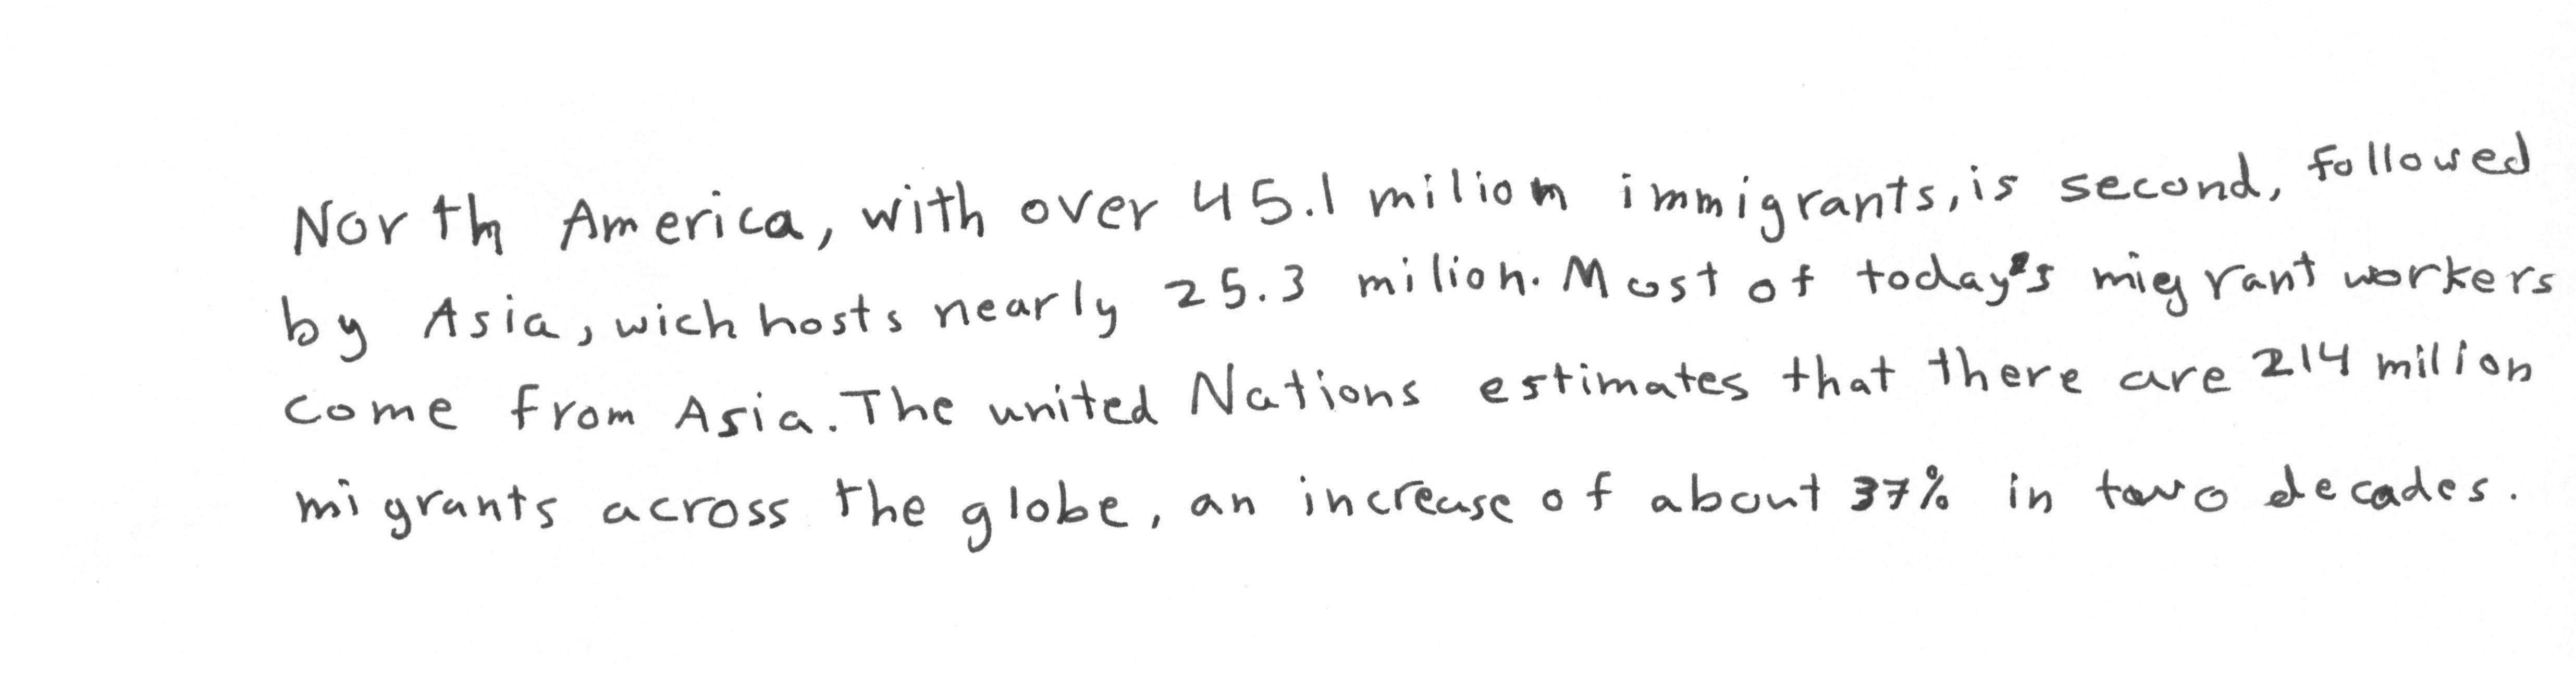 North America, with over 45.1 milion immigrants, is second, followed
by Asia, wich hosts nearly 25.3 milion. Most of today's migrant workers
come from Asia. The united Nations estimates that there are 214 milion
migrants across the globe, an increase of about 37% in two decades.